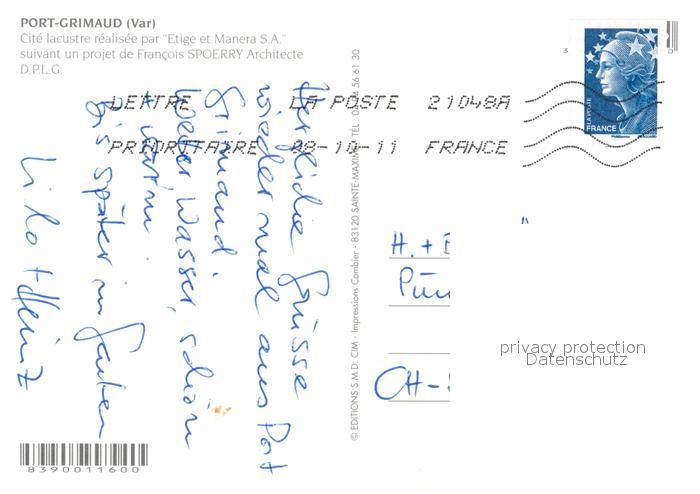 PORT-GRIMAUD (Var)
Cité lacustre réalisée par "Etige et Manera S.A."
suivant un projet de François SPOERRY Architecte
D.P.L.G.
LETTRE LA POSTE 21048A
PRIORITAIRE 08-10-11 FRANCE
LA POSTE
FRANCE
Herzliche Grüsse
wieder mal aus Port
Grimaud
Wetter, Wasser, schön
+ warm
Bis später im Garten
Lilo + Heinz
© EDITIONS S.M.D. CIM - Impressions Combier - 83120 SAINTE-MAXIME - TÉL. 56 61 30
H. +
CH-
privacy protection
Datenschutz
8390011600